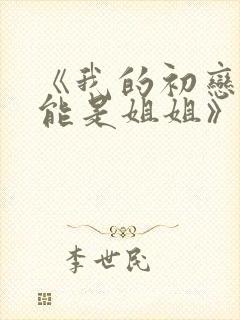 《我的初戀
能是姐姐》
李世民